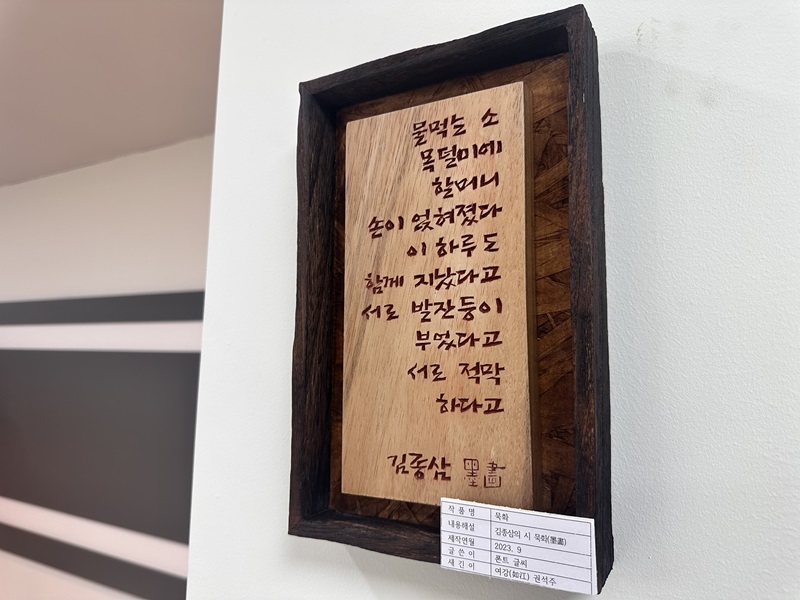 물먹는 소
목덜미에
할머니
손이 얹혀졌다
이 하루도
함께 지났다고
서로 발잔둥이
부었다고
서로 적막
하다고
김종삼 墨畵
작 품 명 묵화
내용해설 김종삼의 시 묵화(墨畵)
제작연월 2023. 9
글 쓴 이 폰트 글씨
새 긴 이 여강(如江) 권석주